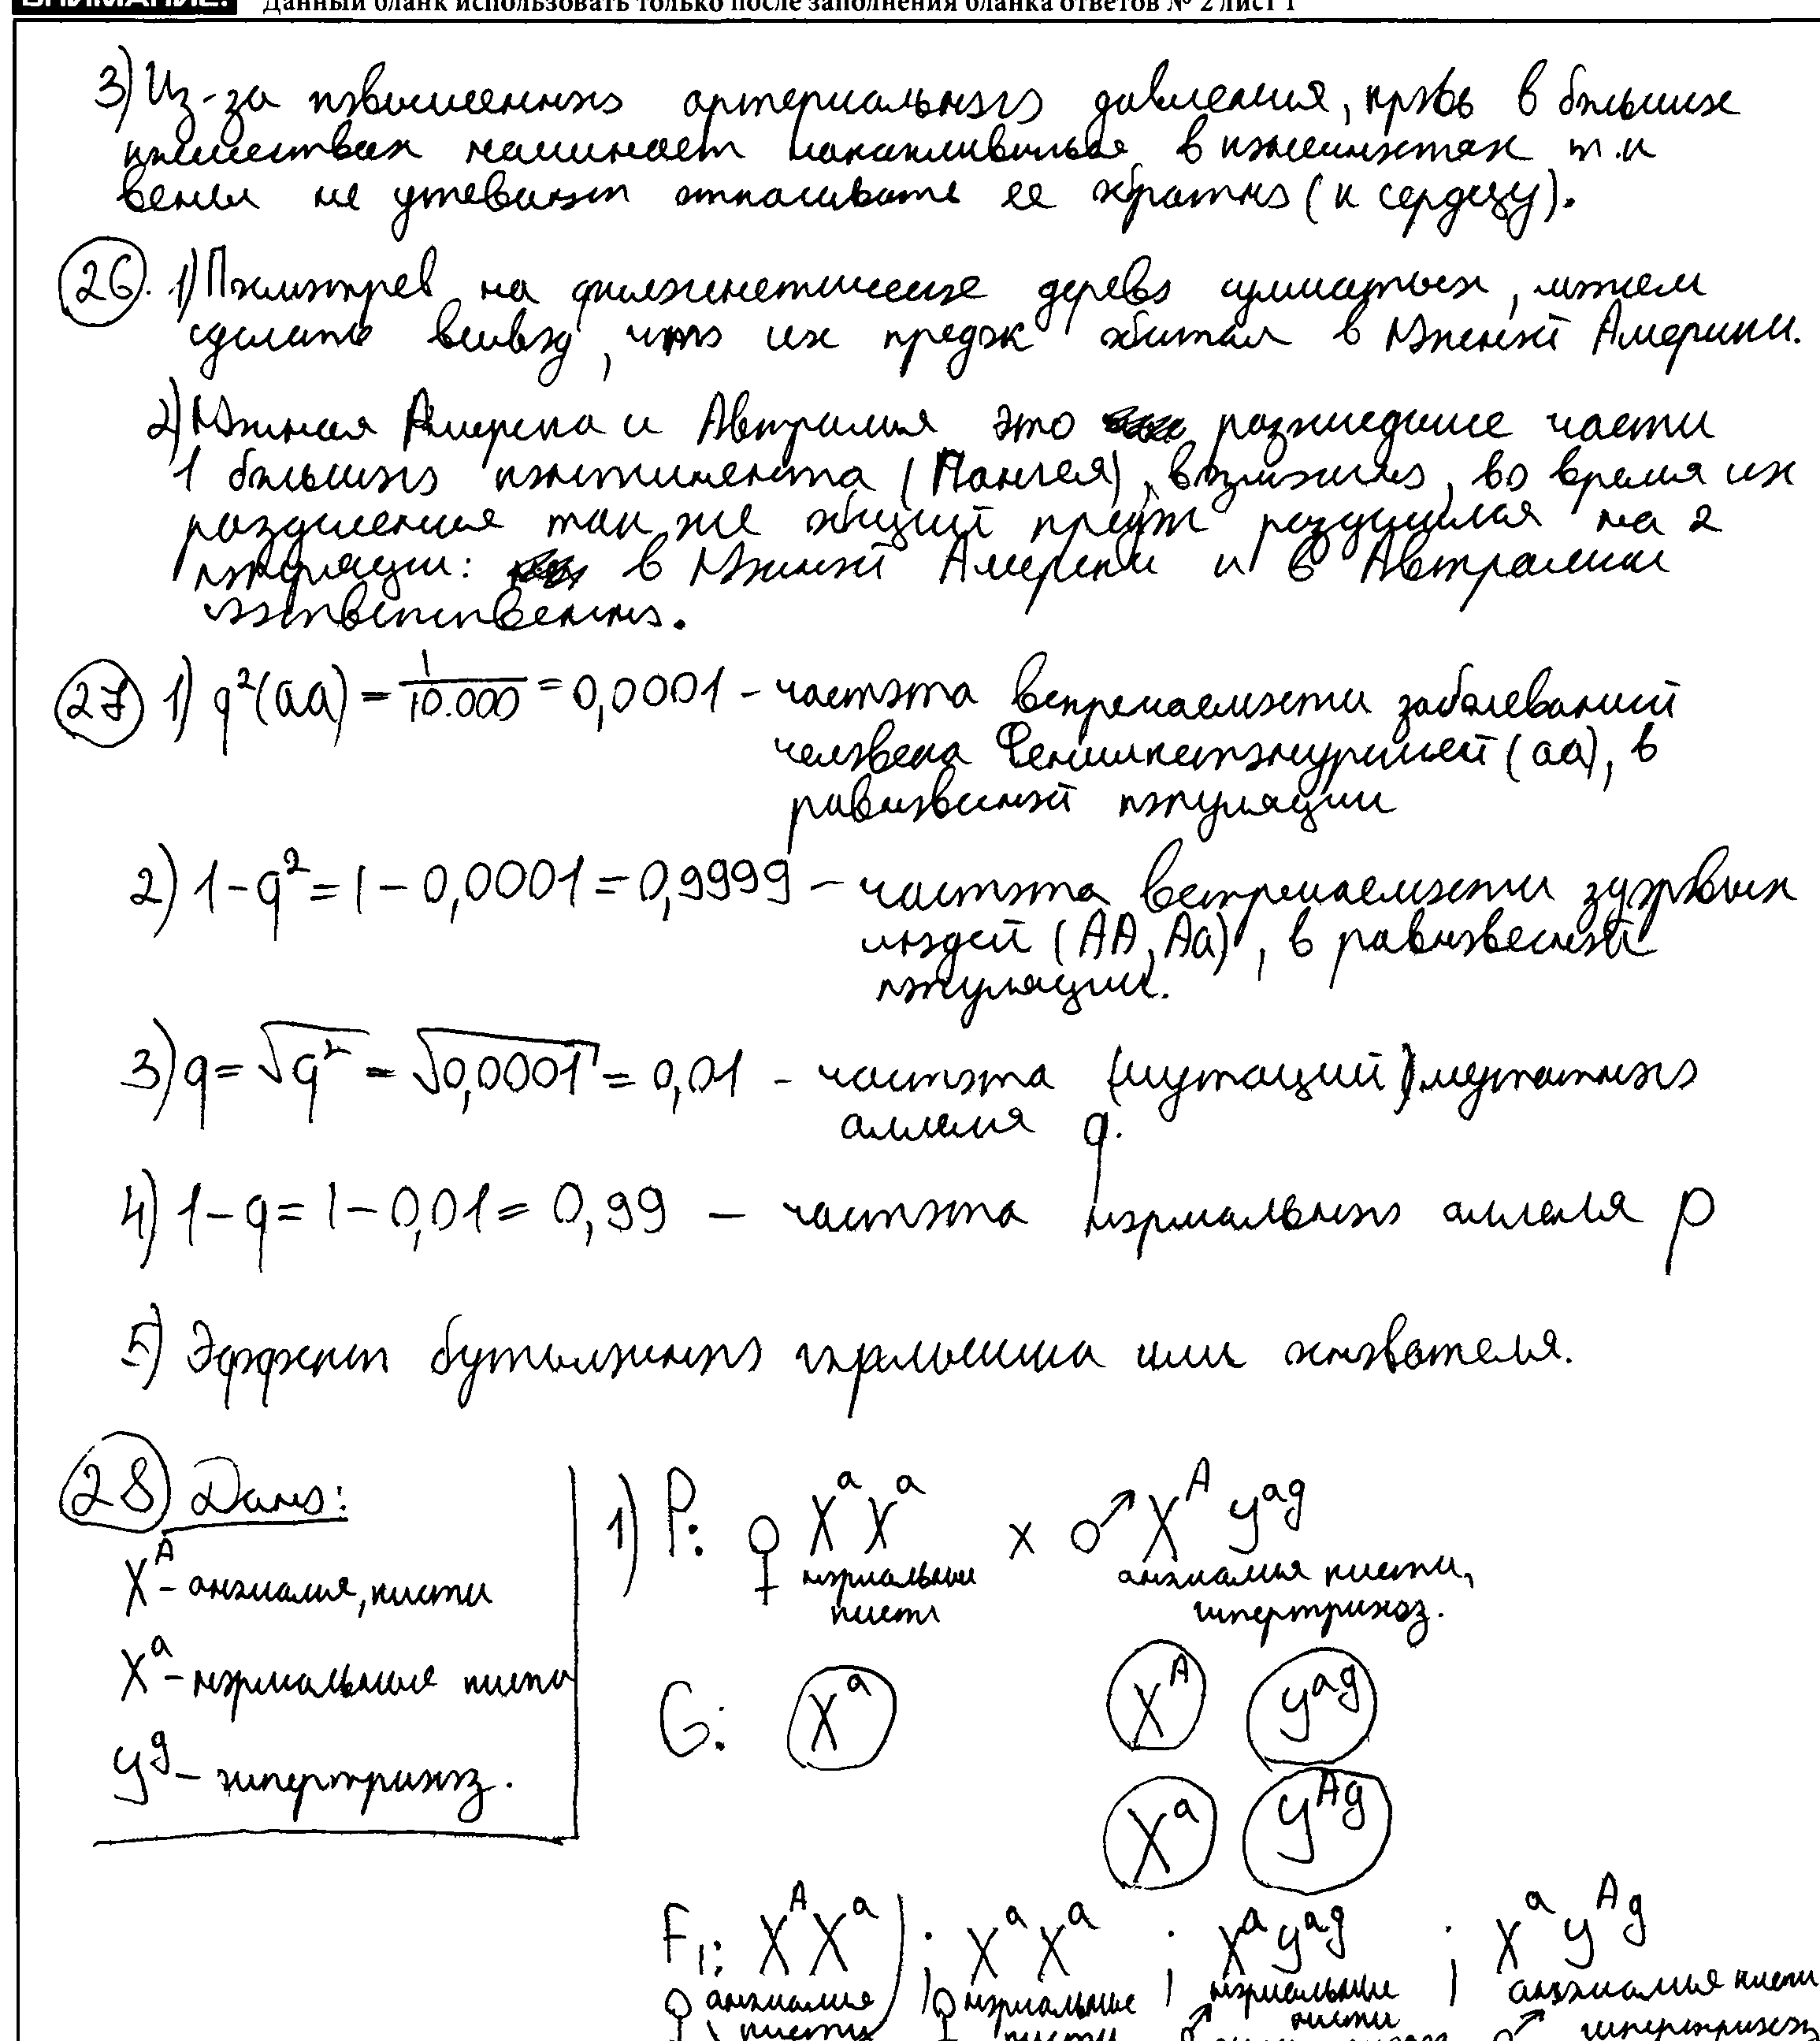 ВНИМАНИЕ! Данный бланк использовать только после заполнения бланка ответов № 2 лист 1
3) Из-за повышенного артериального давления, кровь в больших
количествах начинает накапливаться в конечностях т.к
вены не успевают откачивать ее обратно (к сердцу).
26. 1) Посмотрев на филогенетическое дерево сумчатых, можем
сделать вывод, что их предок обитал в Южной Америки.
2) Южная Америка и Австралия это разошедшие части
1 большого континента (Пангея), возможно, во время их
разделения так же общий предок разделился на 2
популяции: в Южной Америки и в Австралии
соответственно.
27 1) q²(aa) = 1/10.000 = 0,0001 - частота встречаемости заболеваний
человека Фенилкетонурией (aa), в
равновесной популяции
2) 1 - q² = 1 - 0,0001 = 0,9999 - частота встречаемости здоровых
людей (AA, Aa), в равновесной
популяции.
3) q = √q² = √0,0001 = 0,01 - частота (мутаций) мутантного
аллеля q.
4) 1 - q = 1 - 0,01 = 0,99 - частота нормального аллеля p
5) Эффект бутылочного горлышка или основателя.
28 Дано:
X^A - аномалия, кисти
X^a - нормальные кисти
y^g - гипертрихоз.
1) P: ♀ X^a X^a x ♂ X^A y^ag
нормальные кисти
аномалия кисти, гипертрихоз.
G: X^a X^A y^ag
X^a y^Ag
F₁: X^A X^a ; X^a X^a ; X^a y^ag ; X^a y^Ag
♀ аномалия кисти ♀ нормальные кисти ♂ нормальные кисти ♂ аномалия кисти гипертрихоз